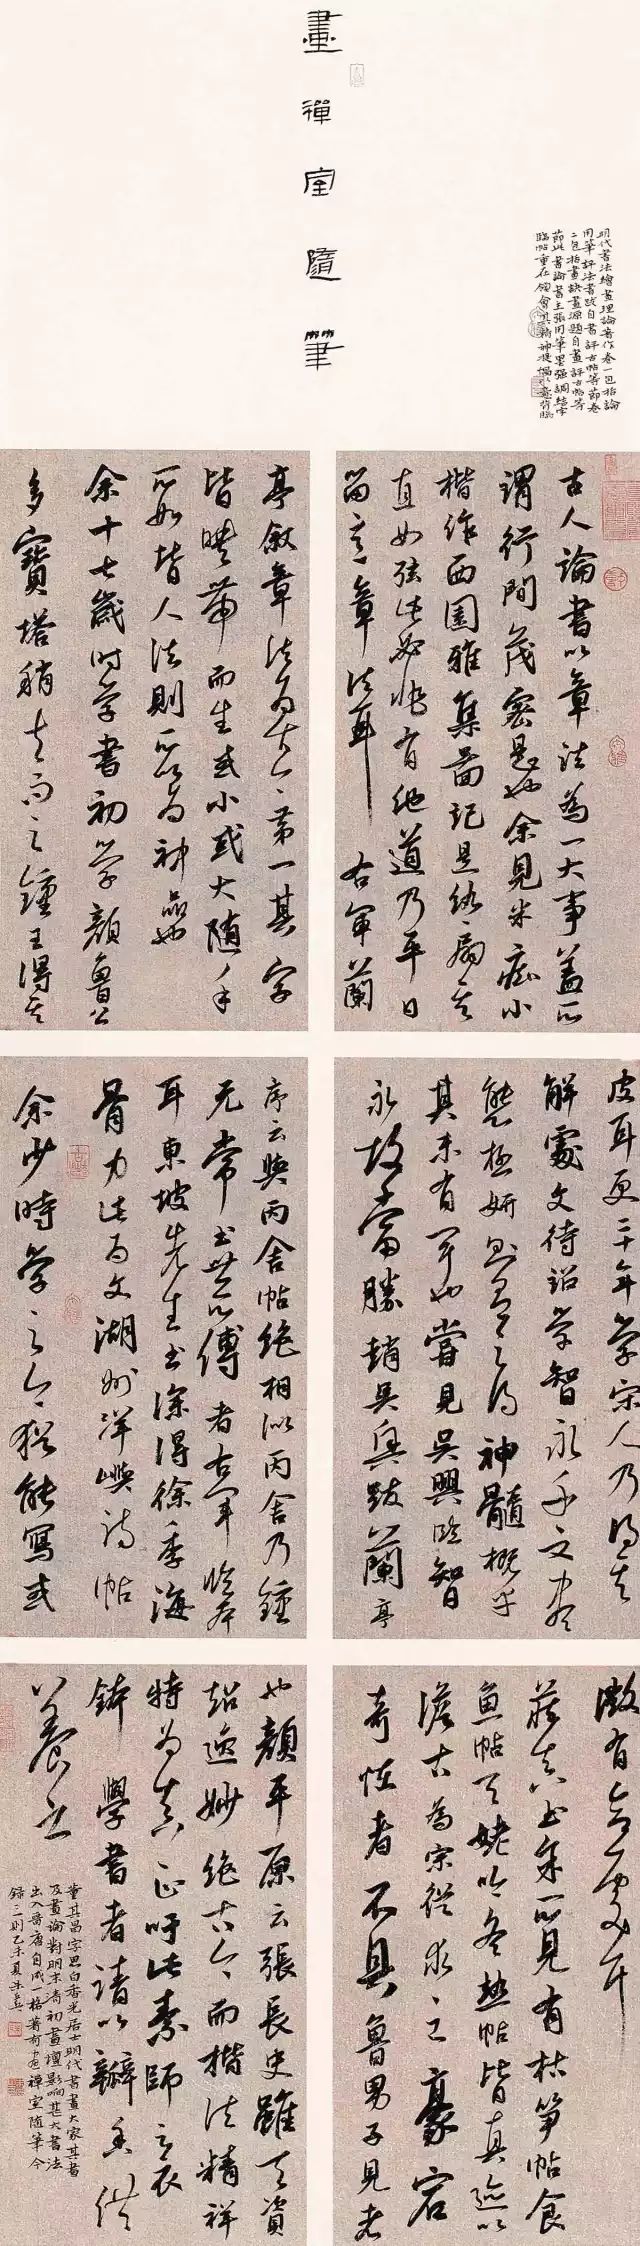 畫禪室隨筆
明代書法繪畫理論著作卷一包括論
用筆評法書跋自書評古帖等節卷
二包括畫訣畫源題自畫評古畫等
節此書論書主張用筆墨強調結字
臨帖重在領會其精神提倡
古人論書以章法為一大事蓋所
謂行間茂密是也余見米癡小
楷作西園雅集圖記是紈扇其
直如弦此必非有他道乃平日
留意章法耳右軍蘭
亭敘章法為古今第一其字
皆映帶而生或小或大隨手
所如皆入法則所以為神品也
余十七歲時學書初學顏魯公
多寶塔稍去而之鍾王得其
皮耳更二十年學宋人乃得其
解處文待詔學智永千文盡
態極妍則有之得神髓概乎
其未有聞也嘗見吳興臨智
永故當勝趙吳興跋蘭亭
序云與丙舍帖絕相似丙舍乃鍾
元常書世所傳者右軍臨本
耳東坡先生書深得徐季海
骨力此為文湖州洋嶼詩帖
余少時學之今猶能寫或
微有合處耳
藏真書余所見有枯笋帖食
魚帖天姥吟冬熱帖皆真跡以
淡古為宗從求之豪宕
奇怪者不具魯男子見者
也顏平原云張長史雖天資
超逸妙絕古今而楷法精詳
特為真正吁此素師之衣
缽學書者請以瓣香供
養之
董其昌字思白香光居士明代書畫大家其書
及畫論對明末清初畫壇影響甚大書法
出入晉唐自成一格著有畫禪室隨筆今
錄三則乙未夏